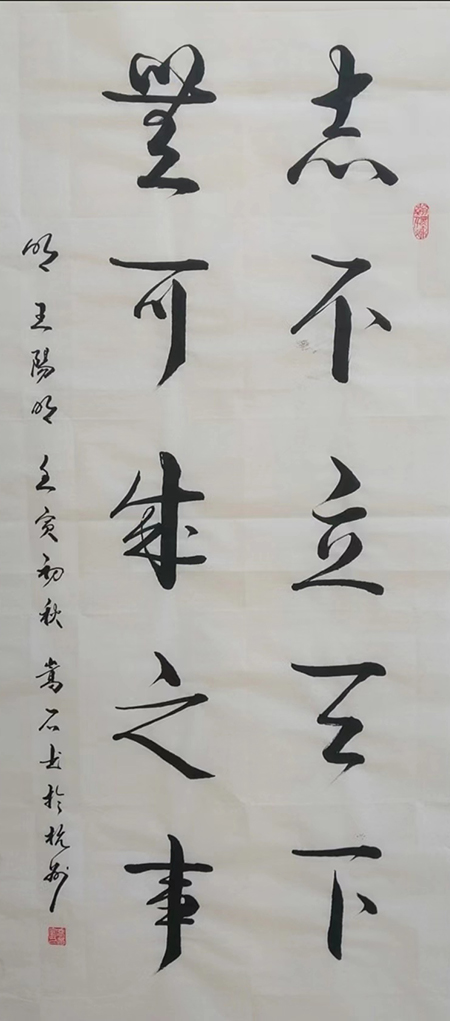 志不立天下
無可成之事
明 王陽明 壬寅初秋 嵩石书於杭州